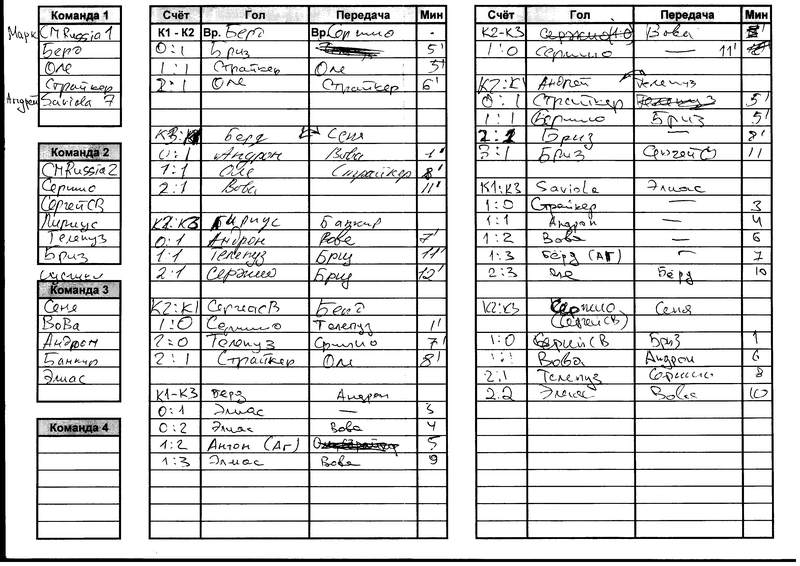 Команда 1
Марк CMRussia 1
Берд
Оле
Страйкер
Андрей Saviola 7
Команда 2
CMRussia2
Сержио
СергейСВ
Лириус
Телепуз
Бриз
Команда 3
Сеня
ВоВа
Андрон
Банкир
Элиас
Команда 4
Счёт Гол Передача Мин
К1 - К2 Вр. Берд Вр. Сержио -
0:1 Бриз 5'
1:1 Страйкер Оле 5'
2:1 Оле Страйкер 6'
Берд Сеня
0:1 Андрон Вова 1'
1:1 Оле Страйкер 8'
2:1 Вова 11'
К2:К3 Лириус Банкир
0:1 Андрон Вова 7'
1:1 Телепуз Бриз 11'
2:1 Сержио Бриз 12'
К2:К1 СергейСВ Берд
1:0 Сержио Телепуз 1'
2:0 Телепуз Сержио 7'
2:1 Страйкер Оле 8'
К1-К3 Берд Андрон
0:1 Элиас — 3
0:2 Элиас Вова 4
1:2 Антон (АГ) 5
1:3 Элиас Вова 9
Счёт Гол Передача Мин
К2-К3 Вова
1:0 Сержио — 11'
К2:К1 Андрей Телепуз
0:1 Страйкер 5'
1:1 Сержио Бриз 5'
2:1 Бриз — 8'
3:1 Бриз Сергей С 11
К1:К3 Saviola Элиас
1:0 Страйкер — 3
1:1 Андрон — 4
1:2 Вова — 6
1:3 Берд (АГ) — 7
2:3 Оле Берд 10
К2:К3 Сержио Сеня
(СергейСВ)
1:0 СергейСВ Бриз 1
1:1 Вова Андрон 6
2:1 Телепуз Сержио 8
2:2 Элиас Вова 10